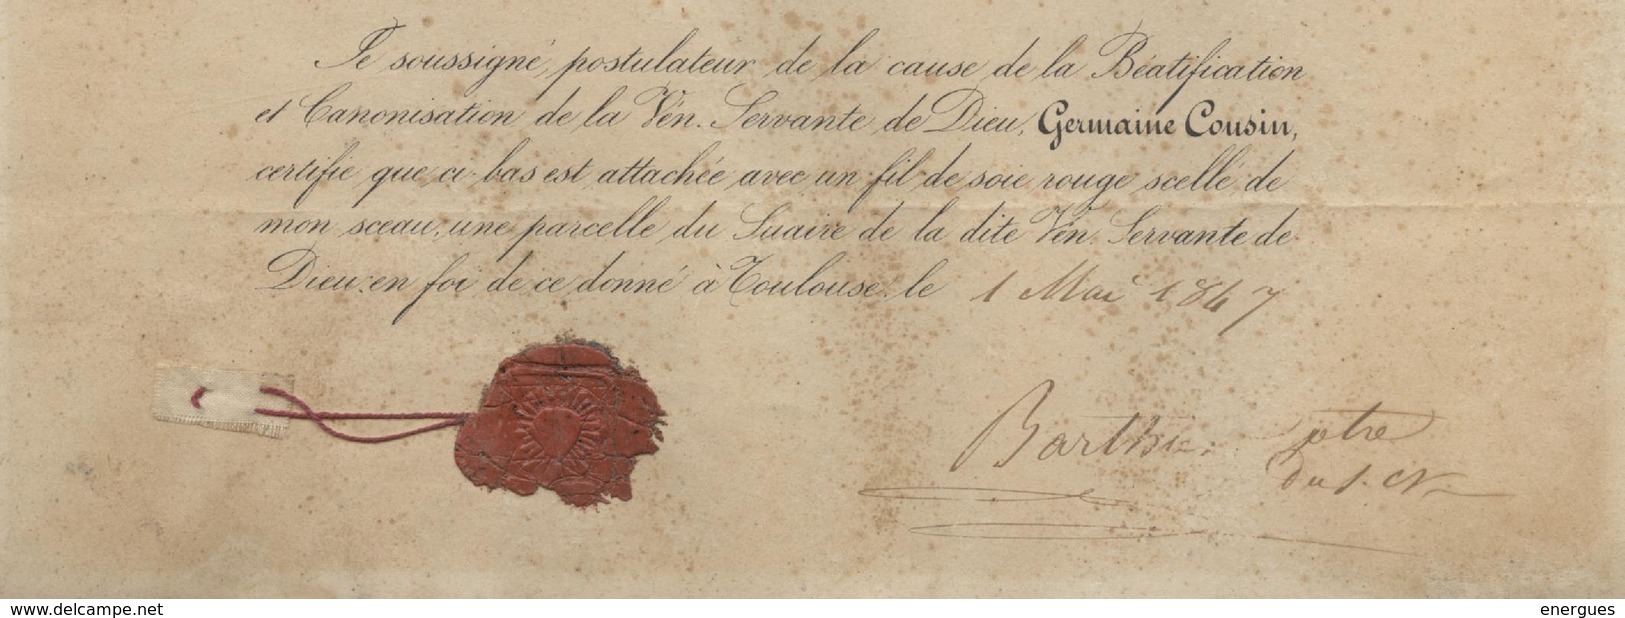 Je soussigné, postulateur de la cause de la Béatification
et Canonisation de la Vén. Servante de Dieu, Germaine Cousin,
certifie que ci-bas est attachée avec un fil de soie rouge scellé de
mon sceau, une parcelle du Suaire de la dite Vén. Servante de
Dieu: en foi de ce donné à Toulouse le 1 Mai 1847
ptre
du S. C
www.delcampe.net
energues